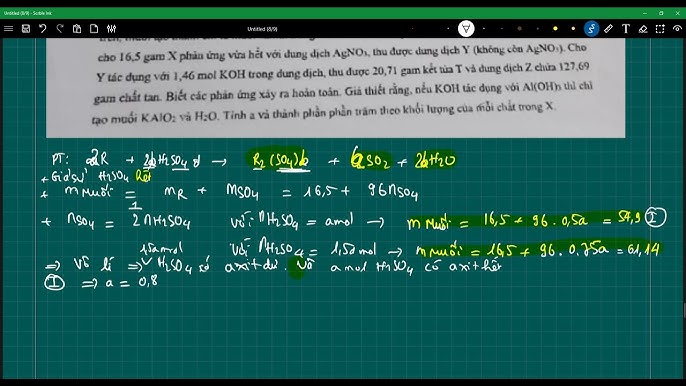 Untitled (8/9) - Scrble Ink
Untitled (8/9)
cho 16,5 gam X phản ứng vừa hết với dung dịch AgNO₃, thu được dung dịch Y (không còn AgNO₃). Cho
Y tác dụng với 1,46 mol KOH trong dung dịch, thu được 20,71 gam kết tủa T và dung dịch Z chứa 127,69
gam chất tan. Biết các phản ứng xảy ra hoàn toàn. Giả thiết rằng, nếu KOH tác dụng với Al(OH)₃ thì chỉ
tạo muối KAlO₂ và H₂O. Tính a và thành phần phần trăm theo khối lượng của mỗi chất trong X.
PT: 2R + 2bH₂SO₄ đ → R₂(SO₄)b + bSO₂ + 2bH₂O
+ Giả sử H₂SO₄ hết
+ m muối = mR + mSO₄ = 16,5 + 96nSO₄
+ nSO₄ = 1/2 nH₂SO₄ với nH₂SO₄ = amol → m muối = 16,5 + 96 . 0,5a = 54,9 (I)
với nH₂SO₄ = 1,5amol → m muối = 16,5 + 96 . 0,75a = 61,14
⇒ Vô lí ⇒ 1,5amol H₂SO₄ có axit dư. Và amol H₂SO₄ có axit hết
(I) ⇒ a = 0,8